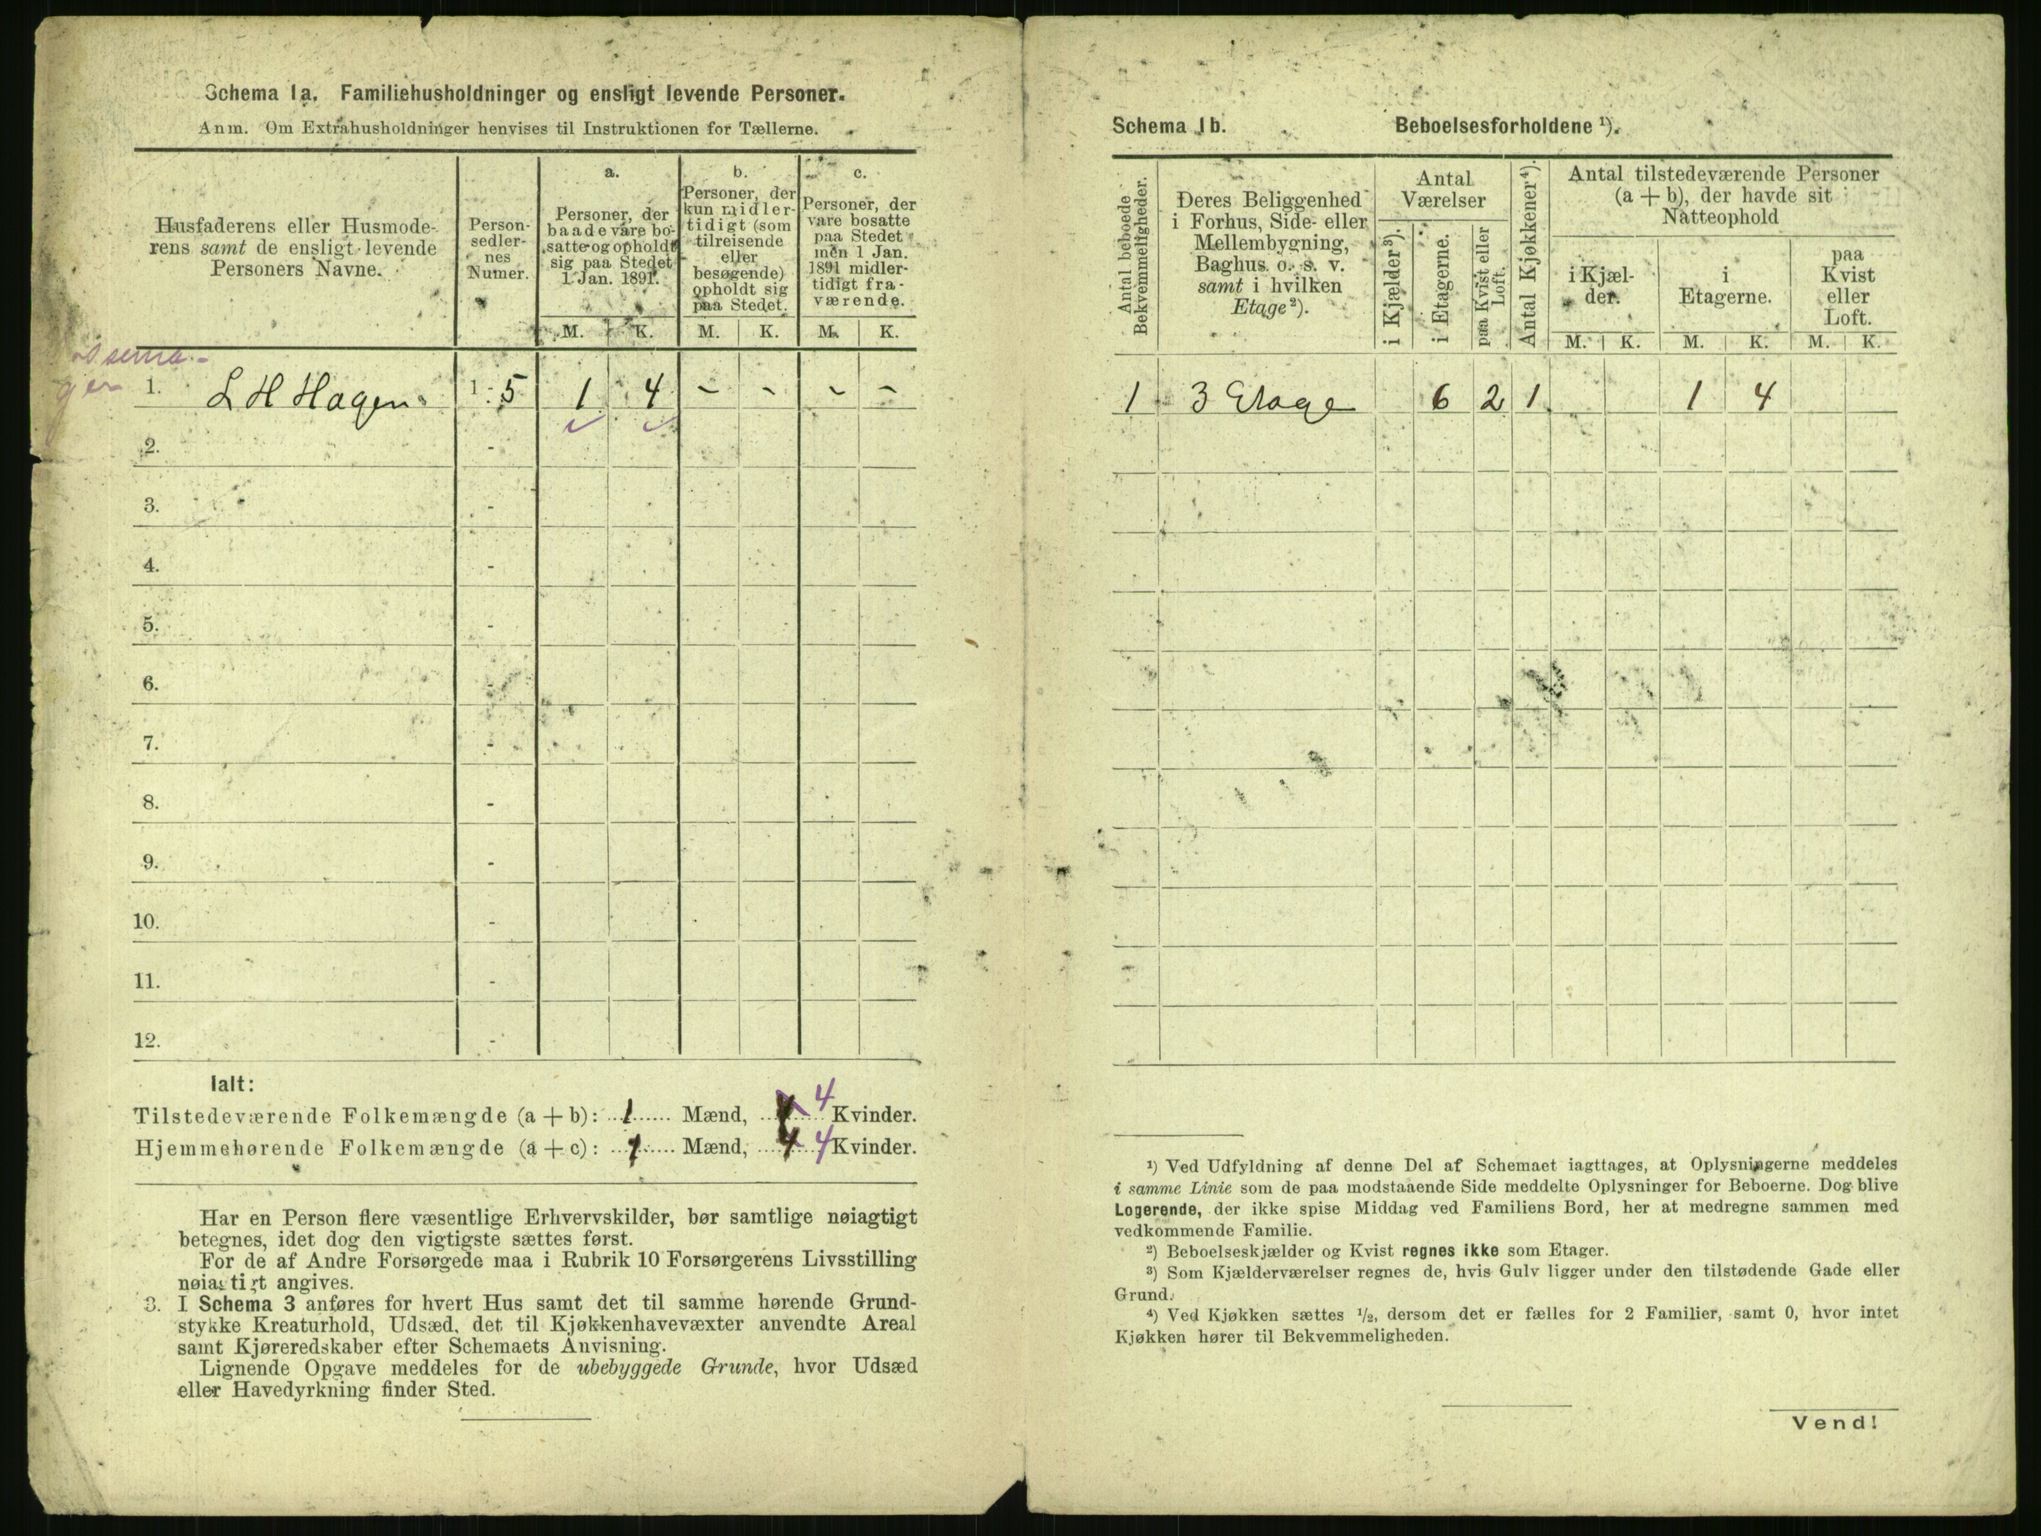 Schema 1a. Familiehusholdninger og ensligt levende Personer.
Anm. Om Extrahusholdninger henvises til Instruktionen for Tællerne.
Husfaderens eller Husmode-
rens samt de ensligt levende
Personers Navne.
Person-
sedler-
nes
Numer.
a.
Personer, der
baade vare bo-
satte og opholdt
sig paa Stedet
1 Jan. 1891.
b.
Personer, der
kun midler-
tidigt (som
tilreisende
eller
besøgende)
opholdt sig
paa Stedet.
c.
Personer, der
vare bosatte
paa Stedet
men 1 Jan.
1891 midler-
tidigt fra-
værende.
M. K. M. K. M. K.
1. L H Hagen 1 - 5 1 4 - - - -
2. -
3. -
4. -
5. -
6. -
7. -
8. -
9. -
10. -
11. -
12. -
Ialt:
Tilstedeværende Folkemængde (a + b): 1 Mænd, 4 Kvinder.
Hjemmehørende Folkemængde (a + c): 1 Mænd, 4 4 Kvinder.
Har en Person flere væsentlige Erhvervskilder, bør samtlige nøiagtigt
betegnes, idet dog den vigtigste sættes først.
For de af Andre Forsørgede maa i Rubrik 10 Forsørgerens Livsstilling
nøiagtigt angives.
3. I Schema 3 anføres for hvert Hus samt det til samme hørende Grund-
stykke Kreaturhold, Udsæd, det til Kjøkkenhavevæxter anvendte Areal
samt Kjøreredskaber efter Schemaets Anvisning.
Lignende Opgave meddeles for de ubebyggede Grunde, hvor Udsæd
eller Havedyrkning finder Sted.
Schema 1b. Beboelsesforholdene ¹).
Antal beboede
Bekvemmeligheder.
Deres Beliggenhed
i Forhus, Side- eller
Mellembygning,
Baghus o. s. v.
samt i hvilken
Etage ²).
Antal
Værelser
i Kjælder ³).
i Etagerne.
paa Kvist eller
Loft.
Antal Kjøkkener ⁴).
Antal tilstedeværende Personer
(a + b), der havde sit
Natteophold
i Kjæl-
der.
i
Etagerne.
paa
Kvist
eller
Loft.
M. K. M. K. M. K.
1 3 Etage 6 2 1 1 4
¹) Ved Udfyldning af denne Del af Schemaet iagttages, at Oplysningerne meddeles
i samme Linie som de paa modstaaende Side meddelte Oplysninger for Beboerne. Dog blive
Logerende, der ikke spise Middag ved Familiens Bord, her at medregne sammen med
vedkommende Familie.
²) Beboelseskjælder og Kvist regnes ikke som Etager.
³) Som Kjælderværelser regnes de, hvis Gulv ligger under den tilstødende Gade eller
Grund.
⁴) Ved Kjøkken sættes ½, dersom det er fælles for 2 Familier, samt 0, hvor intet
Kjøkken hører til Bekvemmeligheden.
Vend!